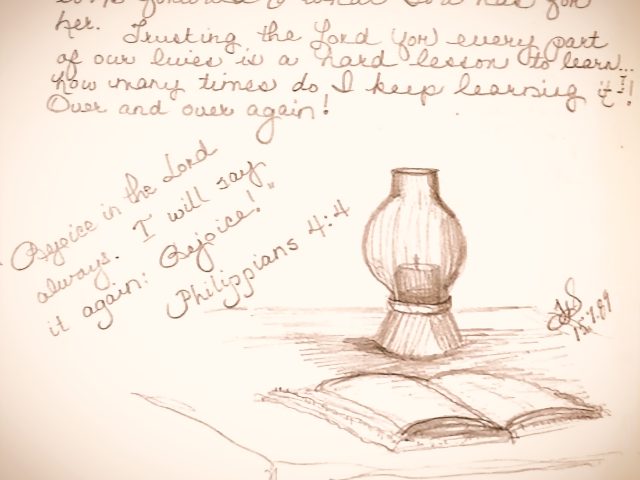 her. Trusting the Lord for every part
of our lives is a hard lesson to learn...
how many times do I keep learning it!
Over and over again!
"Rejoice in the Lord
always. I will say
it again: Rejoice!"
Philippians 4:4